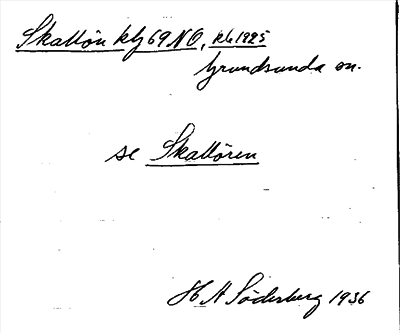 Skattön kbl 69 NO, rkb 1925
Grundsunda sn.
se Skattören
H A Söderberg 1936